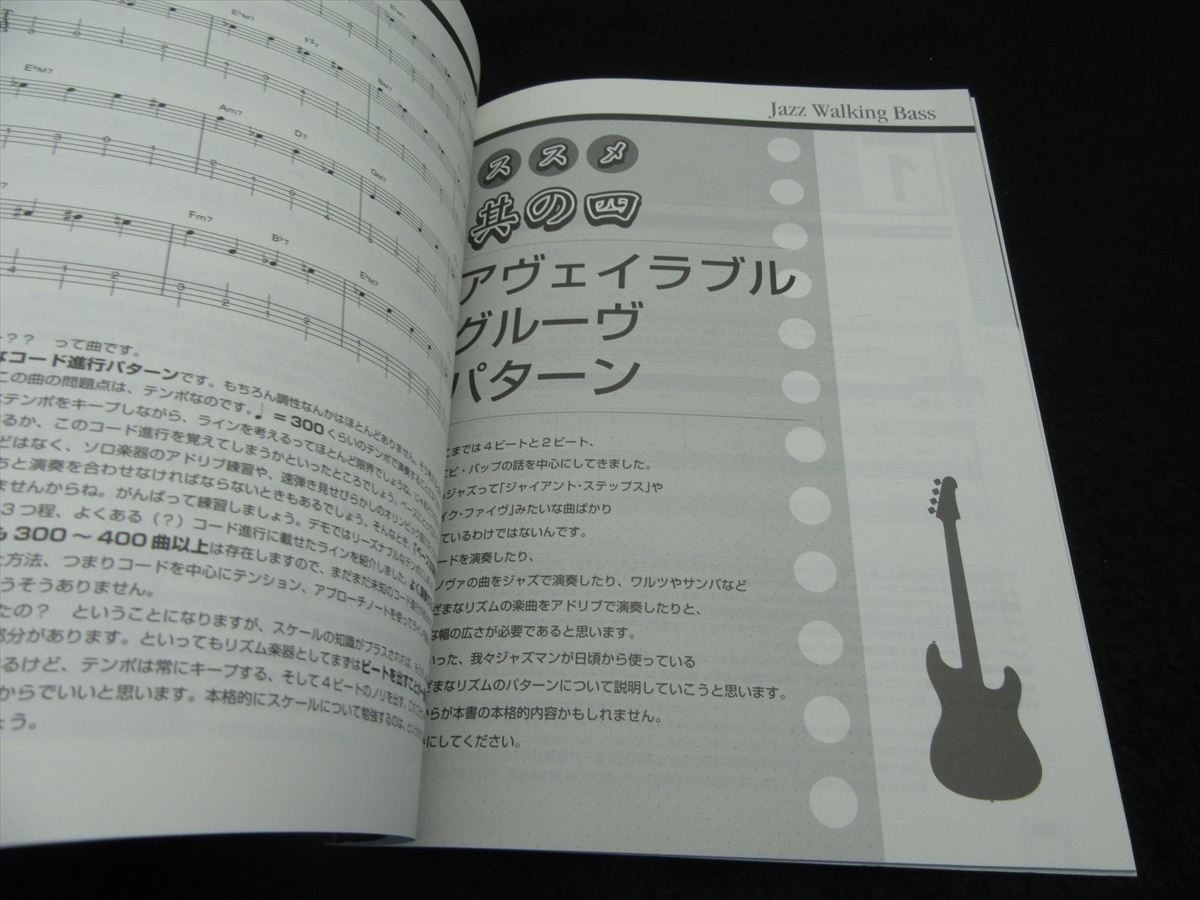 E♭M7
F#7
E♭M7
Am7
D7
Gm7
Fm7
B♭7
E♭M7
？？　って曲です。
なコード進行パターンです。もちろん調性なんかはほとんどありません。
この曲の問題点は、テンポなのです。♩＝300くらいのテンポで演奏する
テンポをキープしながら、ラインを考えるってほとんど限界でしょうね。
るか、このコード進行を覚えてしまうかといったところでしょう。
どはなく、ソロ楽器のアドリブ練習や、速弾き見せびらかしのオリンピック
ちと演奏を合わせなければならないときもあるでしょう。そんなとき、
ませんからね。がんばって練習しましょう。デモではリーズナブルなテンポ
3つ程、よくある（？）コード進行に載せたラインを紹介しました。
も300〜400曲以上は存在しますので、まだまだ未知のコード進行
た方法、つまりコードを中心にテンション、アプローチノートを使って
うそうありません。
たの？　ということになりますが、スケールの知識がプラスされれば、
部分があります。といってもリズム楽器としてまずはビートを出すこと
るけど、テンポは常にキープする、そして4ビートのノリを出す、
からでいいと思います。本格的にスケールについて勉強するのは、
ょう。
Jazz Walking Bass
ススメ
其の四
アヴェイラブル
グルーヴ
パターン
こまでは4ビートと2ビート、
ビ・バップの話を中心にしてきました。
ジャズって「ジャイアント・ステップス」や
イク・ファイヴ」みたいな曲ばかり
ているわけではないんです。
ードを演奏したり、
ノヴァの曲をジャズで演奏したり、ワルツやサンバなど
ざまなリズムの楽曲をアドリブで演奏したりと、
な幅の広さが必要であると思います。
いった、我々ジャズマンが日頃から使っている
ざまなリズムのパターンについて説明していこうと思います。
からが本書の本格的内容かもしれません。
にしてください。